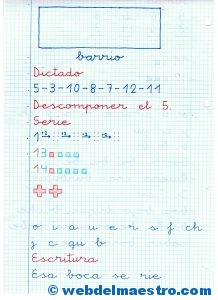 barrio
Dictado
5-3-10-8-7-12-11
Descomponer el 5.
Serie
1
13
14
o i a u e r s f ch
y c qu b
Escritura
Esa boca se rie
© webdelmaestro.com